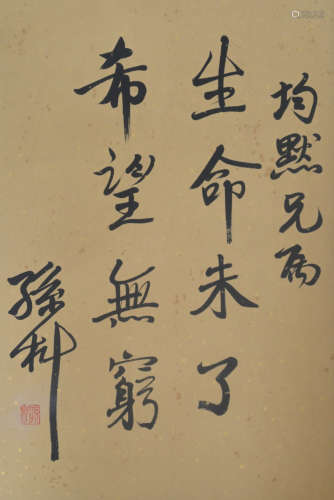 均默兄屬
生命未了
希望無窮
孫科